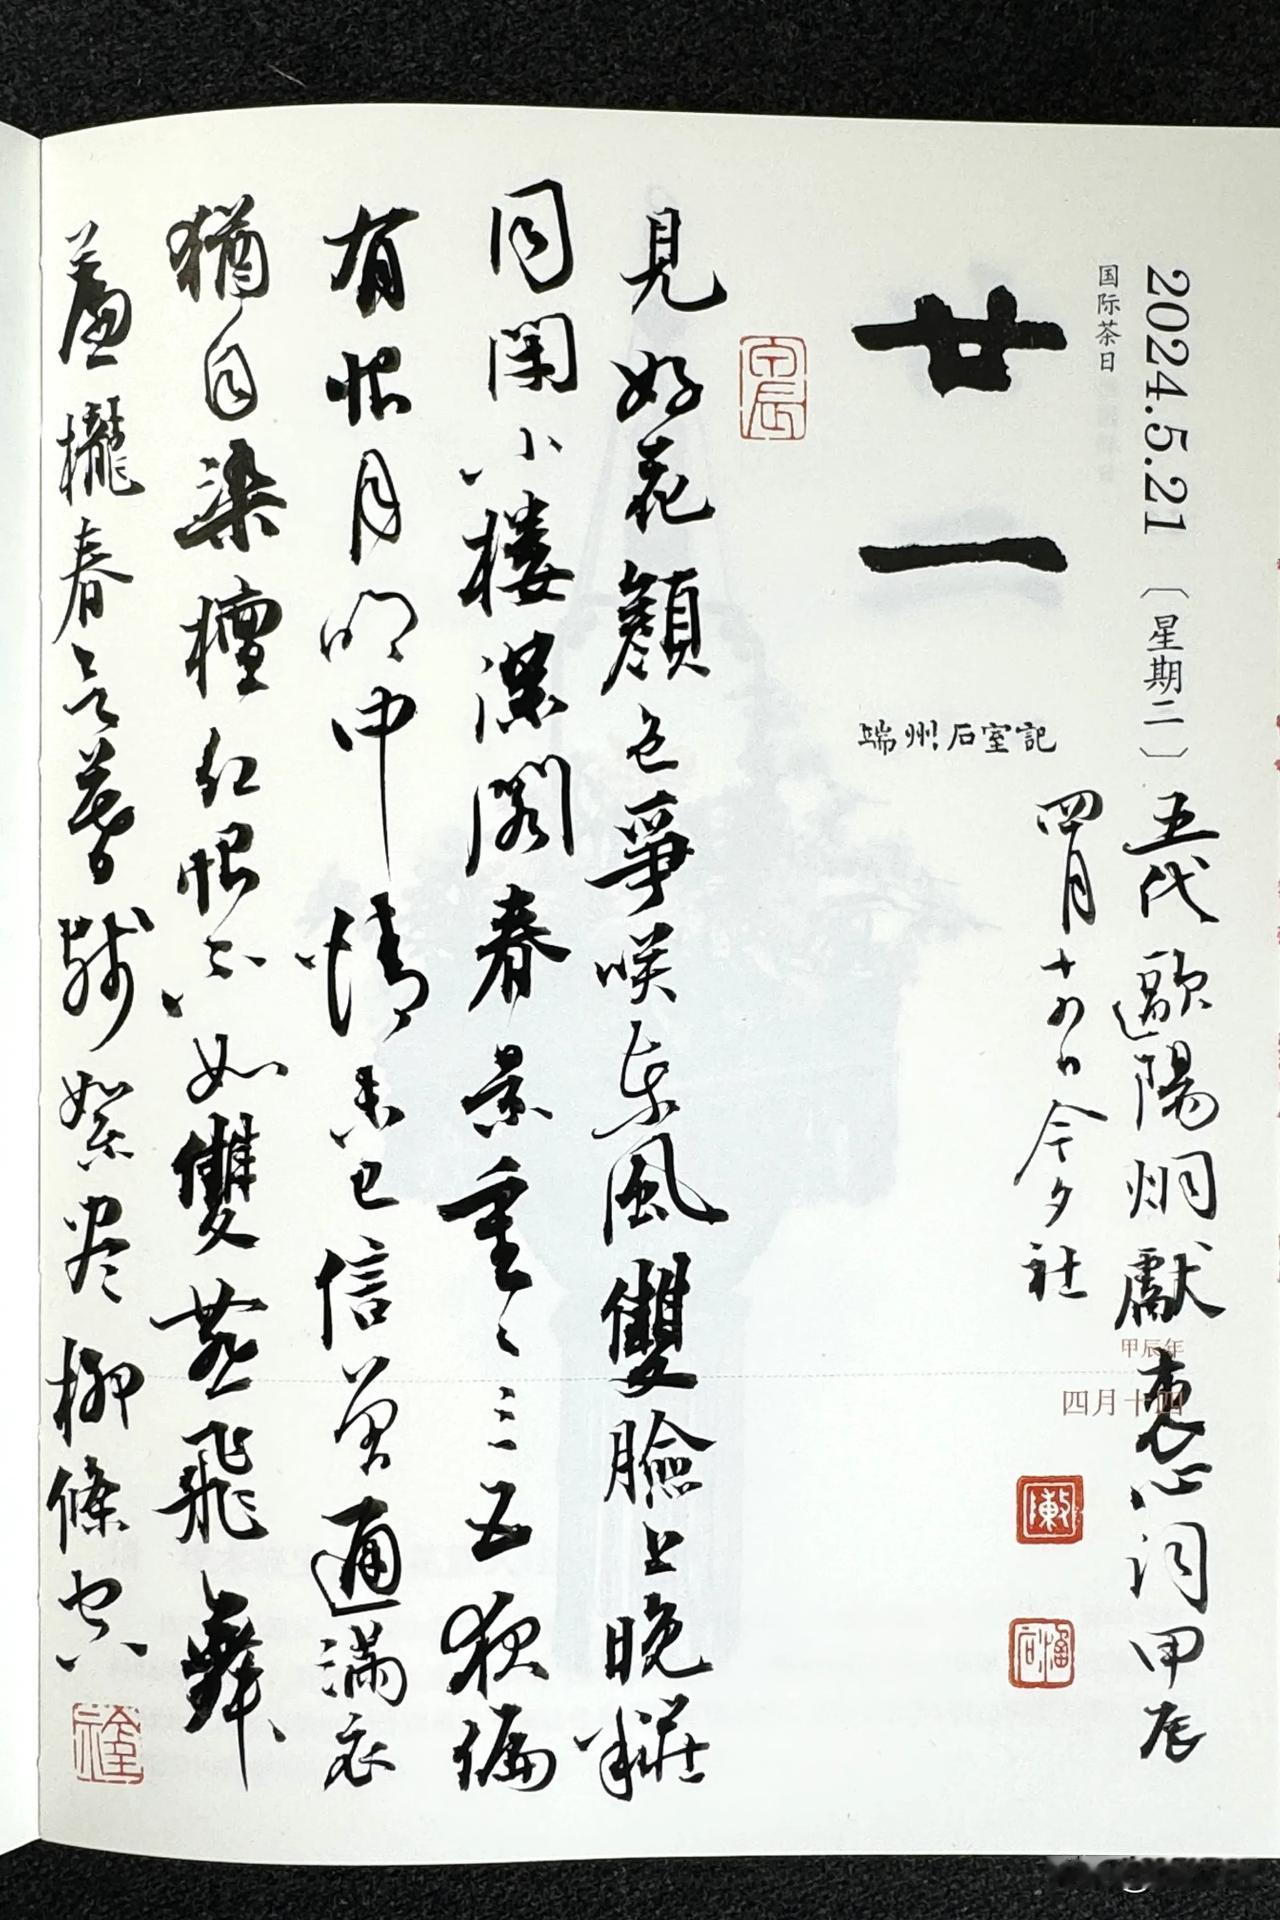 2024.5.21〔星期二〕
国际茶日
廿一
端州石室記
見好花顏色爭咲東風雙臉上晚粧
同閉小樓深閣春景重〻三五夜偏
有恨月明中情未已信曾通滿衣
猶自染檀紅恨不如雙燕飛舞
簾櫳春欲暮殘絮盡柳條空
五代歐陽炯獻衷心詞甲辰
四月十四日今夕社
甲辰年
四月十四